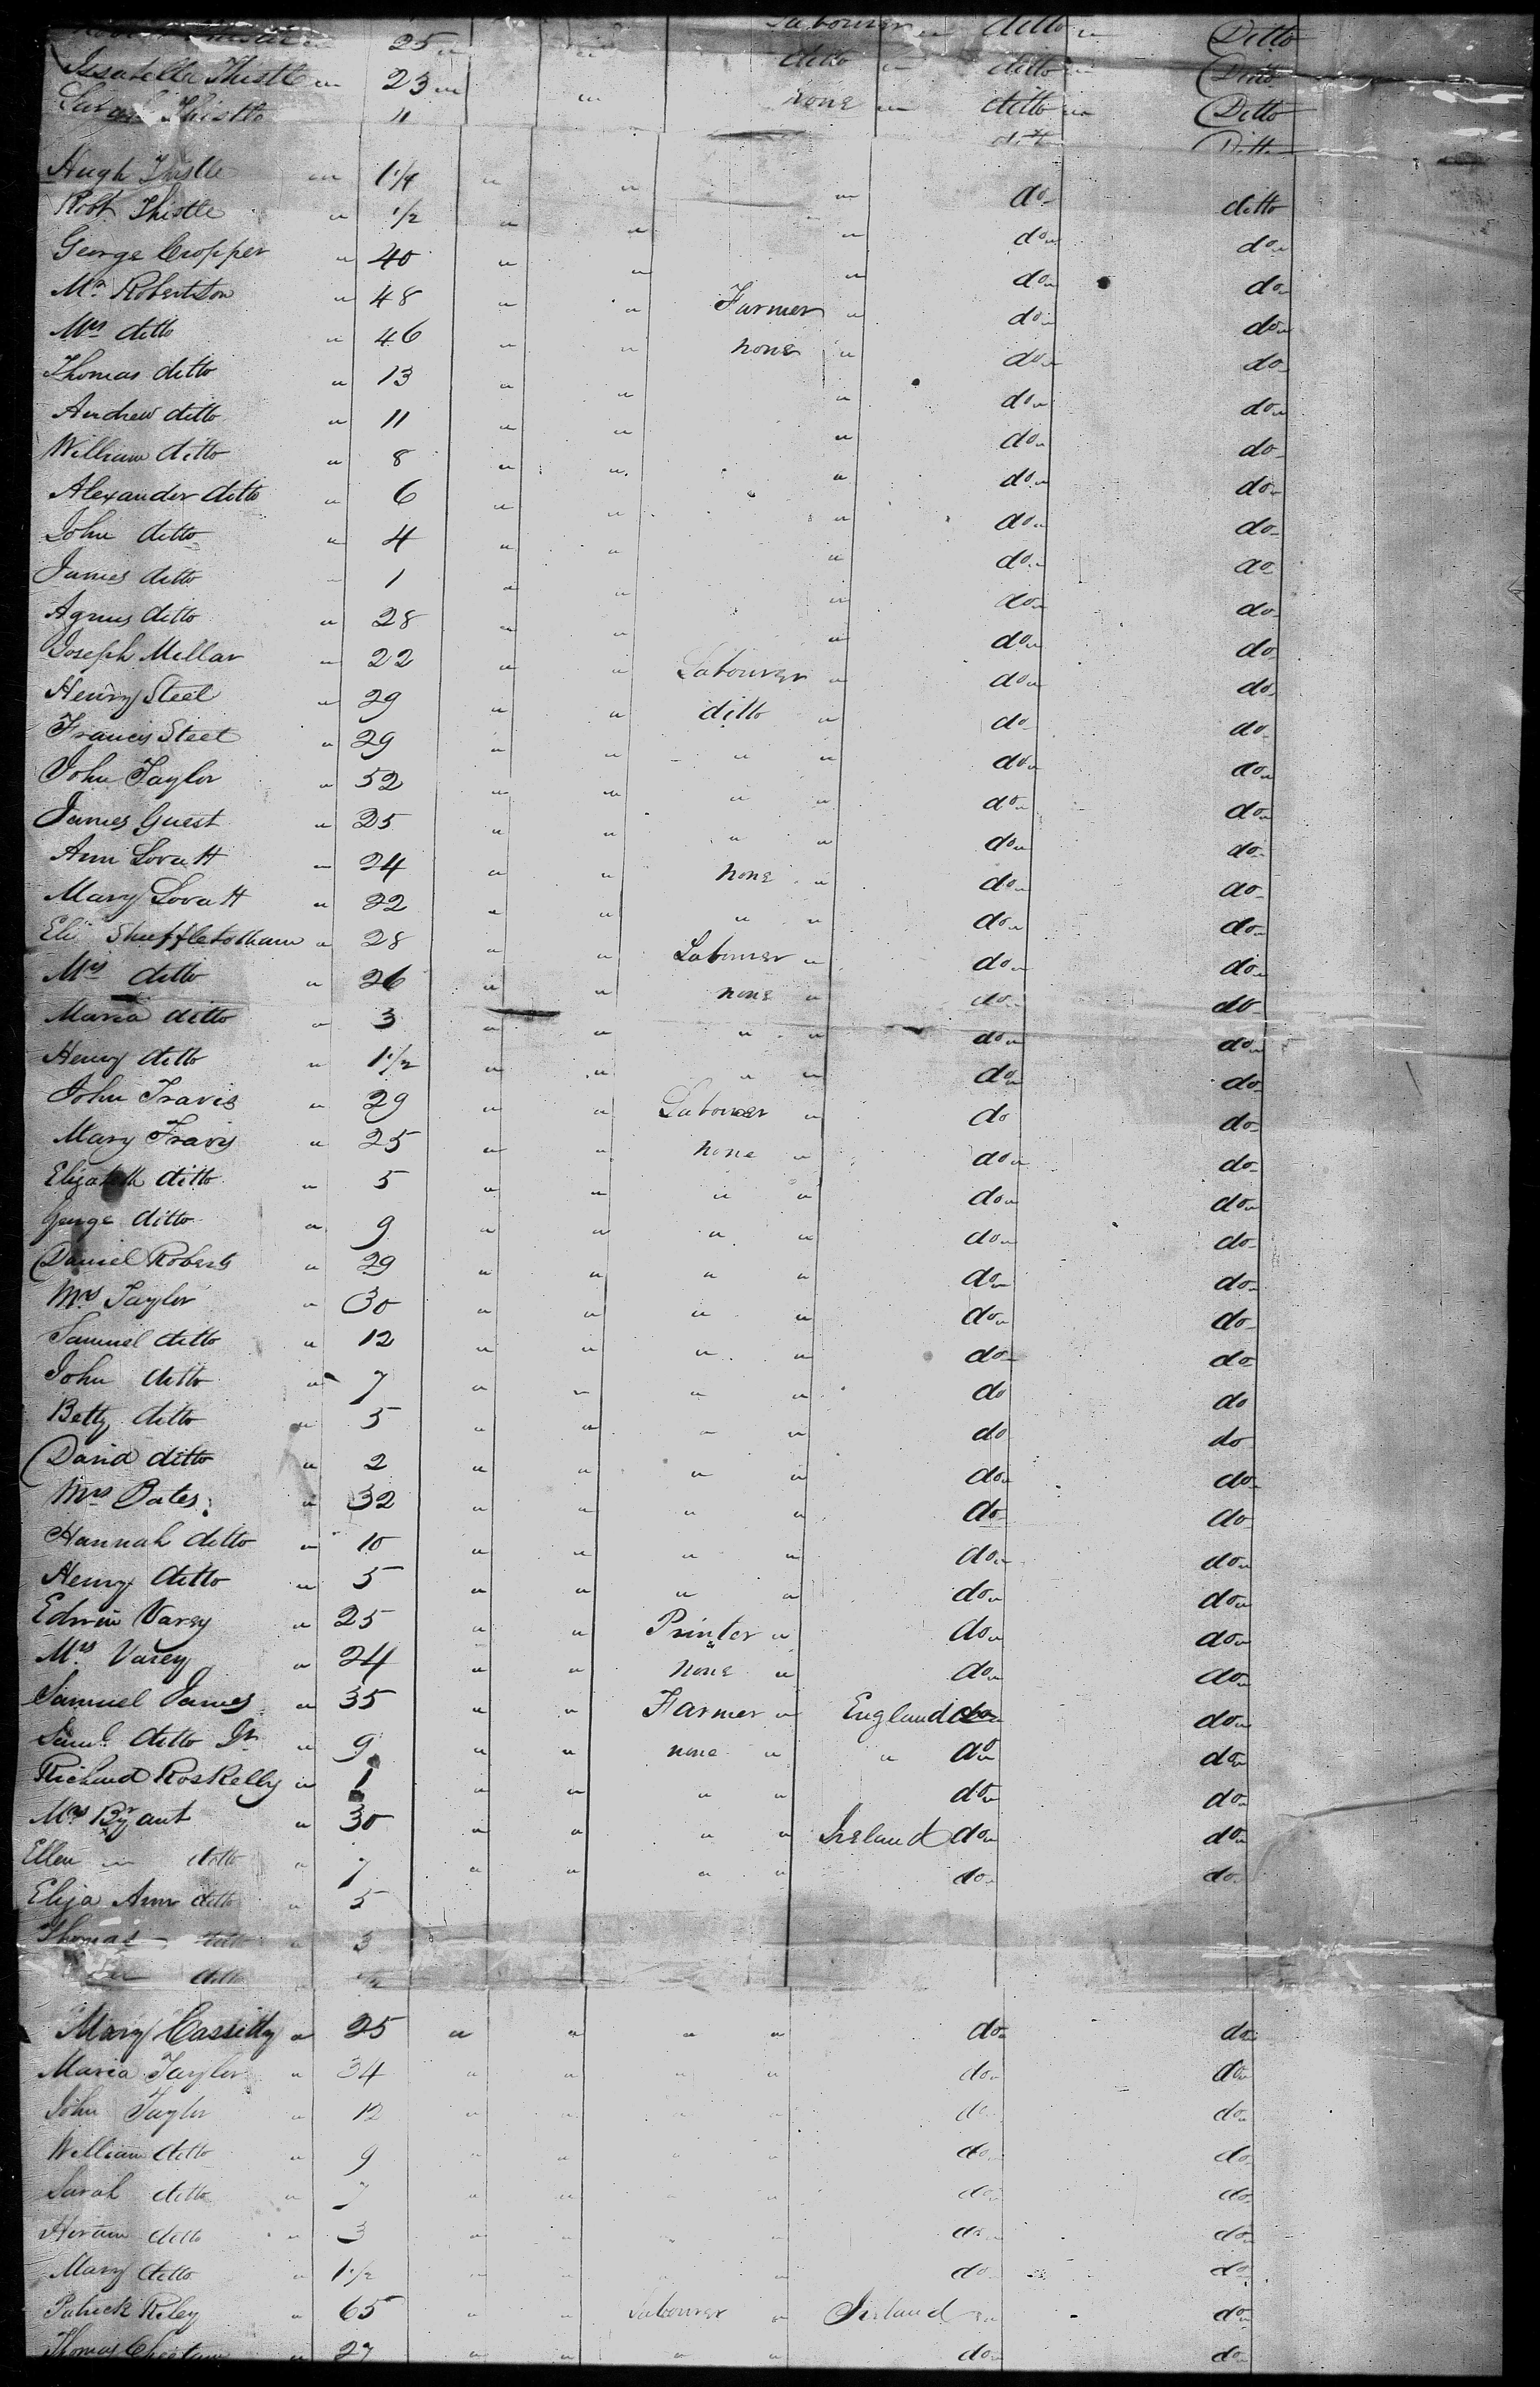 25 " " Labourer " ditto " Ditto
Issabella Thistle " 23 " " ditto " ditto " Ditto
Sarah Thistle 11 none " ditto " Ditto
ditto Ditto
Hugh Thistle " 1 1/4 " " " do ditto
Robt Thistle " 1/2 " " " do " do "
George Cropper " 40 " " " do " do
Mr Robertson " 48 " " Farmer " do " do "
Mrs ditto " 46 " " none " do " do
Thomas ditto " 13 " " " do " do "
Andrew ditto " 11 " " " do " do
William ditto " 8 " " " do " do
Alexander ditto " 6 " " " do " do
John ditto " 4 " " " do " do
James ditto " 1 " " " do " do
Agnus ditto " 28 " " " do " do
Joseph Millar " 22 " " Labourer " do " do
Henry Steel " 29 " " ditto " do do
Francis Steel " 29 " " " " do " do "
John Taylor " 52 " " " " do " do "
James Guest " 25 " " " " do " do
Ann Lovatt " 24 " " none " do " do
Mary Lovatt " 22 " " " " do " do "
Eli Shufflebotham " 28 " " Labourer " do " do "
Mrs ditto " 26 " " none " do " do
Maria ditto " 3 " " " " do " do "
Henry ditto " 1 1/2 " " " " do " do
John Travis " 29 " " Labourer " do do
Mary Travis " 25 " " none " do " do
Elizabeth ditto " 5 " " " " do " do "
George ditto " 9 " " " " do " do
Daniel Roberts " 29 " " " " do " do
Mrs Taylor " 30 " " " " do " do
Samuel ditto " 12 " " " " do do
John ditto " 7 " " " " do do
Betty ditto " 5 " " " " do do
David ditto " 2 " " " " do " do
Mrs Bates " 32 " " " " do do
Hannah ditto " 10 " " " " do " do "
Henry ditto " 5 " " " " do " do "
Edwin Varey " 25 " " Printer " do " do "
Mrs Varey " 24 " " none " do " do "
Samuel James " 35 " " Farmer " England do " do "
Saml ditto Jr " 9 " " none " " do " do "
Richard Roskelly " 1 " " " " do " do "
Mrs Bryant " 30 " " " " Ireland do " do "
Ellen " ditto " 7 " " " " do " do
Eliza Ann ditto " 5
Thomas ditto " 3
ditto
Mary Cassitty " 25 " " " " do " do
Maria Taylor " 34 " " " " do " do "
John Taylor " 12 " " " do do "
William ditto " 9 " " " " do do
Sarah ditto " 7 " " " " do do
Hiram ditto " 3 " " " " do do
Mary ditto " 1 1/2 " " " " do do
Patrick Riley " 65 " " Labourer " Ireland " do "
Thomas " 27 " " " " do " do